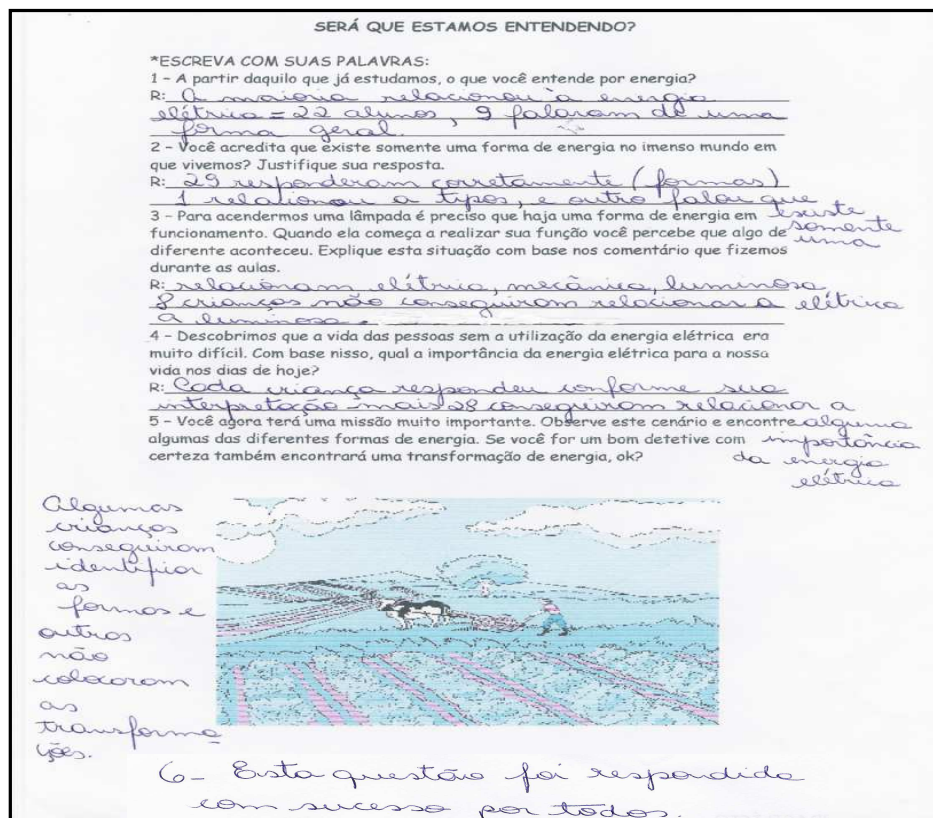 SERÁ QUE ESTAMOS ENTENDENDO?
*ESCREVA COM SUAS PALAVRAS:
1 – A partir daquilo que já estudamos, o que você entende por energia?
R: A maioria relacionou à energia
elétrica = 22 alunos, 9 falaram de uma
forma geral.
2 – Você acredita que existe somente uma forma de energia no imenso mundo em
que vivemos? Justifique sua resposta.
R: 29 responderam corretamente (formas)
1 relacionou a tipos, e outro falou que
existe
somente
uma
3 – Para acendermos uma lâmpada é preciso que haja uma forma de energia em
funcionamento. Quando ela começa a realizar sua função você percebe que algo de
diferente aconteceu. Explique esta situação com base nos comentário que fizemos
durante as aulas.
R: relacionam elétrica, mecânica, luminosa
8 crianças não conseguiram relacionar a elétrica
a luminosa.
4 – Descobrimos que a vida das pessoas sem a utilização da energia elétrica era
muito difícil. Com base nisso, qual a importância da energia elétrica para a nossa
vida nos dias de hoje?
R: Cada criança respondeu conforme sua
interpretação mais 28 conseguiram relacionar a
alguma
importância
da energia
elétrica
5 – Você agora terá uma missão muito importante. Observe este cenário e encontre
algumas das diferentes formas de energia. Se você for um bom detetive com
certeza também encontrará uma transformação de energia, ok?
Algumas
crianças
conseguiram
identificar
as
formas e
outros
não
colocaram
as
transforma
ções.
6- Esta questão foi respondida
com sucesso por todos.